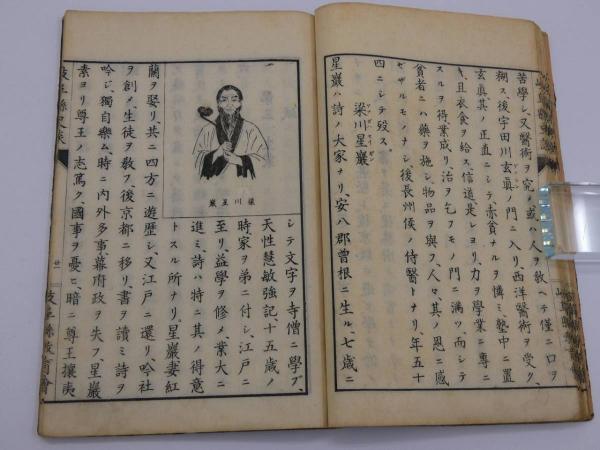 苦學シ、又醫術ヲ究メ、或ハ人ヲ敎ヘテ僅ニ口ヲ
糊ス、後宇田川玄眞ノ門ニ入リ西洋醫術ヲ受ク、
玄眞其ノ正直ニシテ赤貧ナルヲ憐ミ、塾中ニ置
キ、且衣食ヲ給ス、信道是ヨリ、力ヲ學業ニ專ニ
スルヲ得、業成リ、治ヲ乞フモノ門ニ滿ツ、而シテ
貧者ニハ藥ヲ施シ、物品ヲ與フ、人々其ノ恩ニ感
ゼザルモノナシ、後長州侯ノ侍醫トナリ、年五十
四ニシテ歿ス。
梁川星巖
星巖ハ詩ノ大家ナリ、安八郡曾根ニ生ル、七歳ニ
梁川星巖
シテ文字ヲ寺僧ニ學ブ、
天性慧敏強記、十五歳ノ
時家ヲ弟ニ付シ、江戸ニ
至リ、益學ヲ修メ、業大ニ
進ミ、詩ハ特ニ其ノ得意
トスル所ナリ、星巖妻紅
蘭ヲ娶リ、共ニ四方ニ遊歴シ、又江戸ニ還リ、吟社
ヲ創メ、生徒ヲ敎フ、後京都ニ移リ、書ヲ讀ミ詩ヲ
吟ジ、獨自樂ム、時ニ内外多事、幕府政ヲ失フ、星巖
素ヨリ尊王ノ志篤ク、國事ヲ憂ヒ、暗ニ尊王攘夷
岐阜縣史談
廿一
岐阜縣敎育會